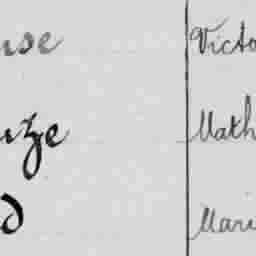 use Victo
uze Math
d Mari